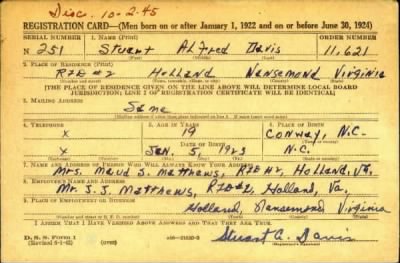 Disc. 10-2-45
REGISTRATION CARD—(Men born on or after January 1, 1922 and on or before June 30, 1924)
SERIAL NUMBER 1. NAME (Print) ORDER NUMBER
N 251 Stuart Alfred Davis 11,621
(First) (Middle) (Last)
2. PLACE OF RESIDENCE (Print)
RFD #2 Holland Nansemond Virginia
(Number and street) (Town, township, village, or city) (County) (State)
[THE PLACE OF RESIDENCE GIVEN ON THE LINE ABOVE WILL DETERMINE LOCAL BOARD
JURISDICTION; LINE 2 OF REGISTRATION CERTIFICATE WILL BE IDENTICAL]
3. MAILING ADDRESS
Same
4. TELEPHONE 5. AGE IN YEARS 6. PLACE OF BIRTH
X 19 Conway,
DATE OF BIRTH
X Jan. 5 1923 N.C.
7. NAME AND ADDRESS OF PERSON WHO WILL ALWAYS KNOW YOUR ADDRESS
Mrs. Maud S. Matthews, RFD #2, Holland, Va.
8. EMPLOYER'S NAME AND ADDRESS
Mr. S. J. Matthews, RFD #2, Holland, Va.
9. PLACE OF EMPLOYMENT OR BUSINESS
Holland, Nansemond Virginia
(Number and street or R. F. D. number) (Town) (County) (State)
I AFFIRM THAT I HAVE VERIFIED ABOVE ANSWERS AND THAT THEY ARE TRUE.
D. S. S. FORM 1
(Revised 6-1-42) (over) Stuart A. Davis
(Registrant's signature)